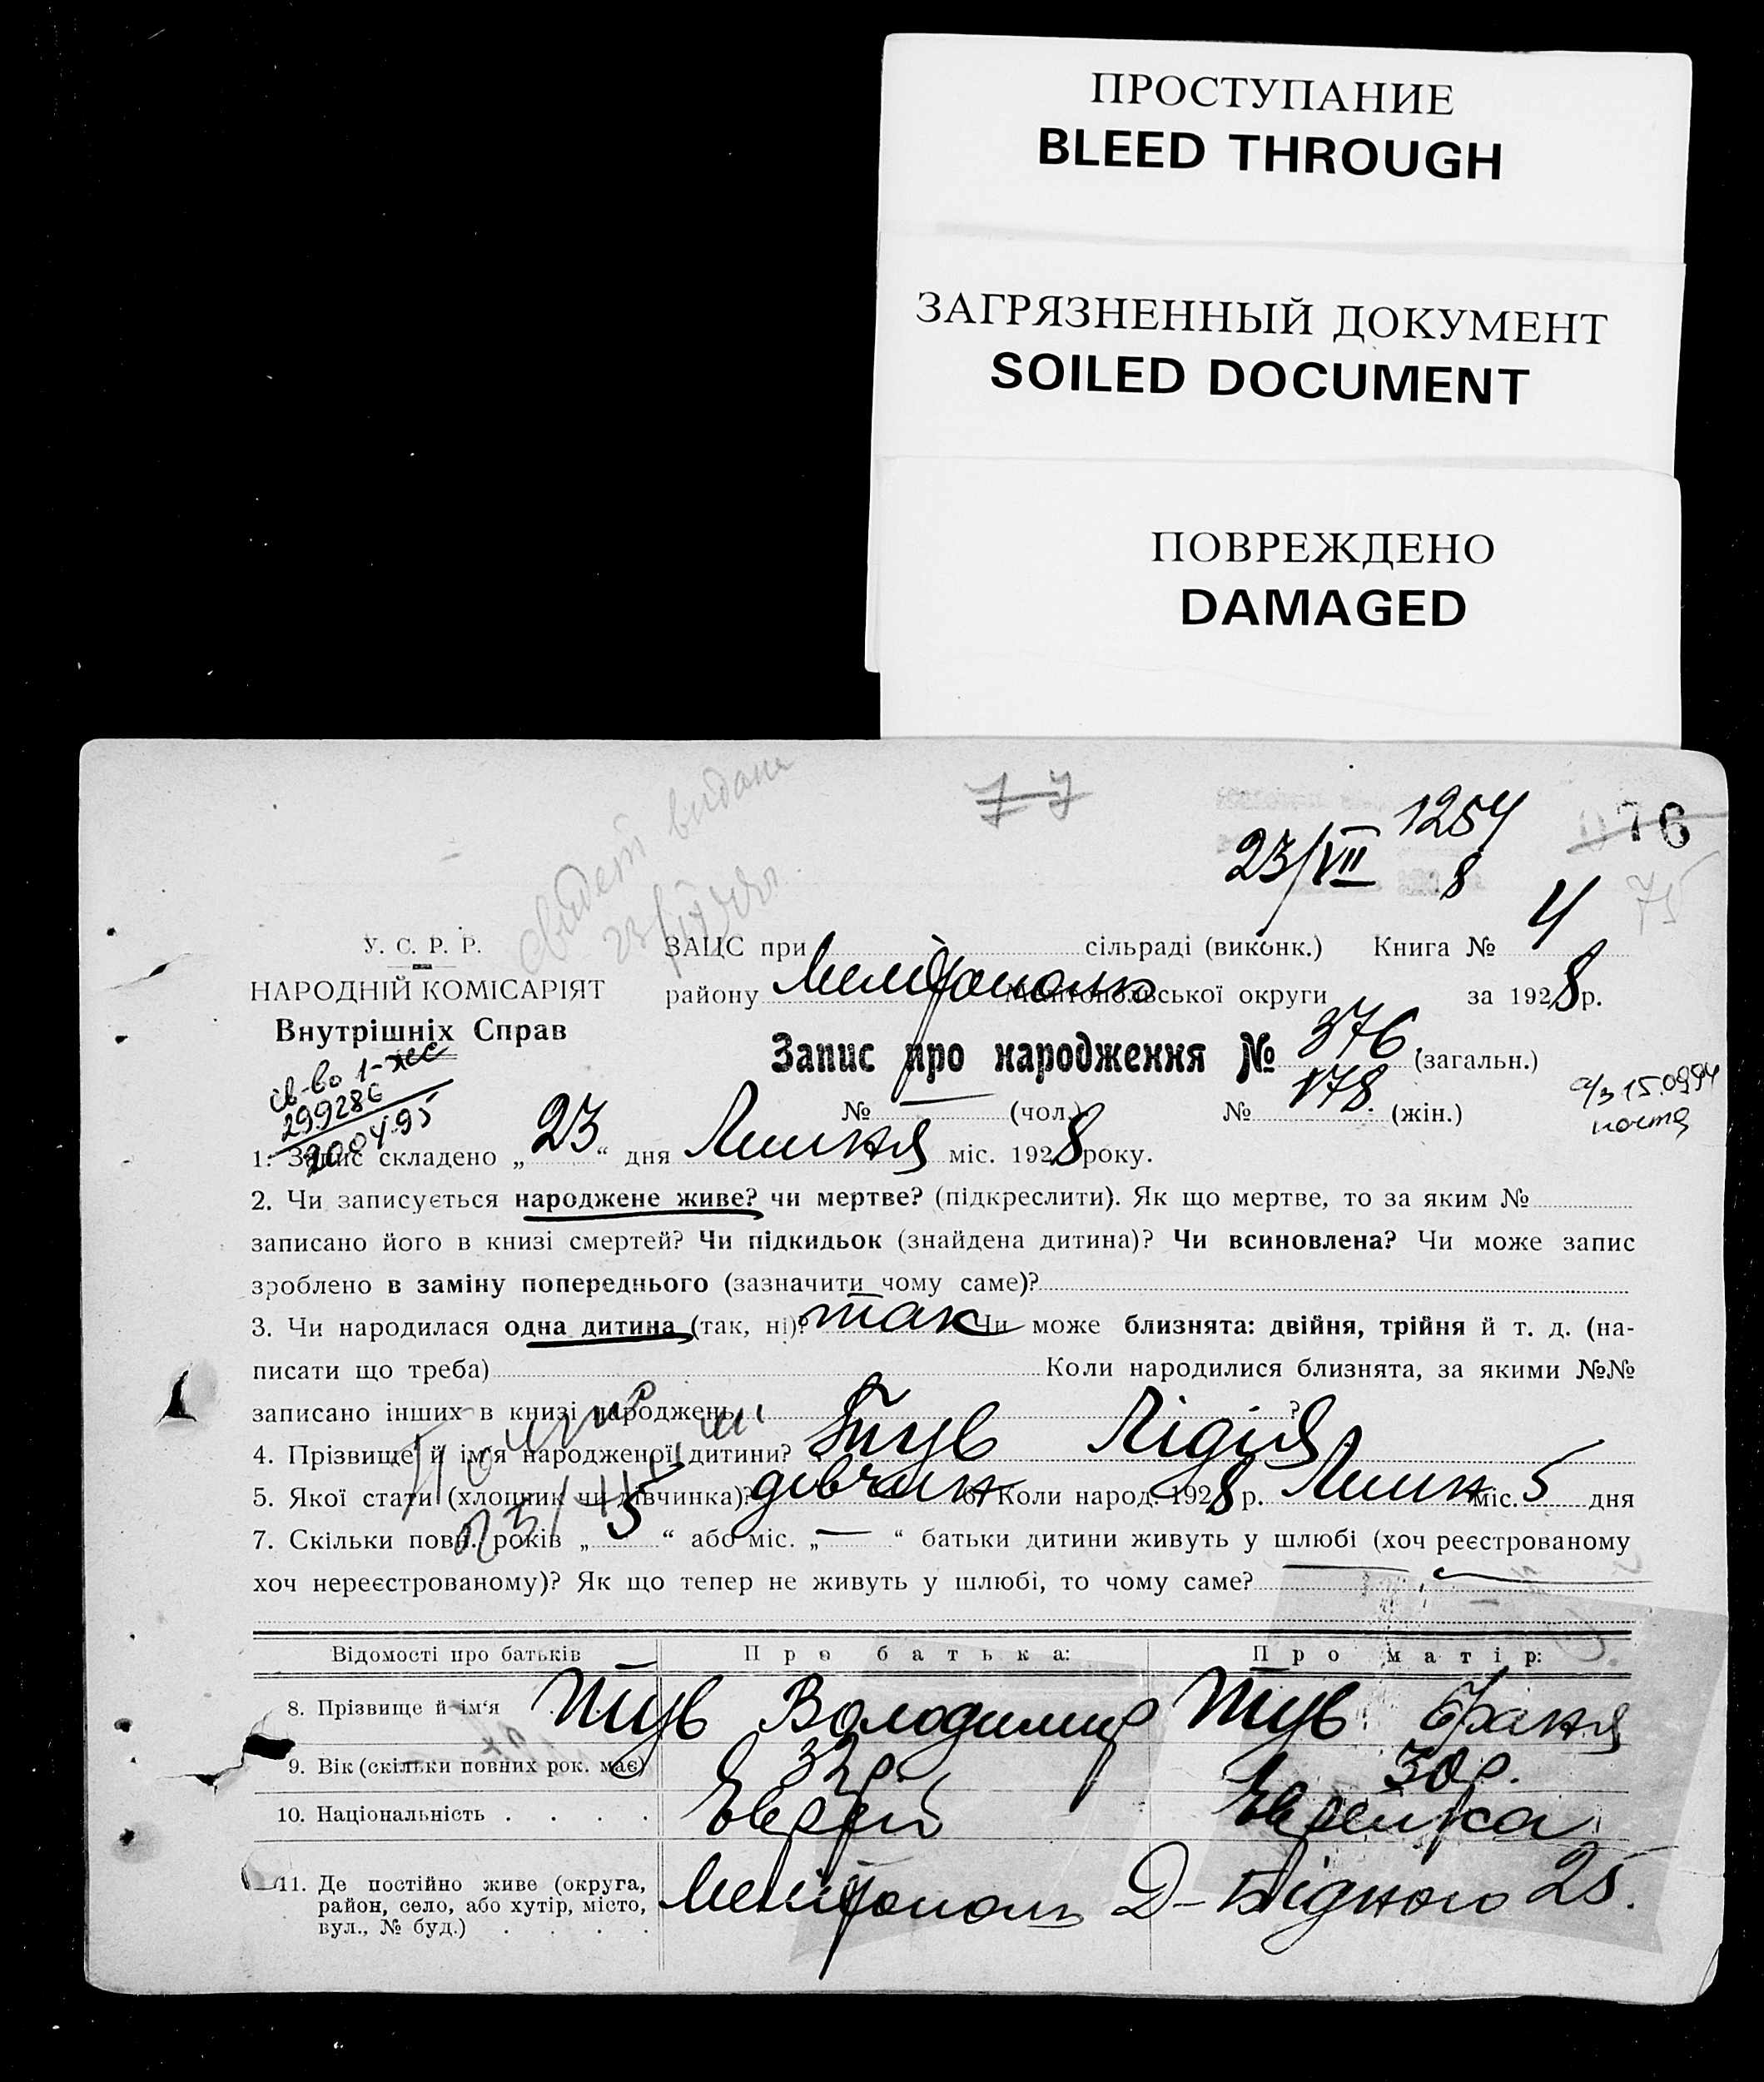 ПРОСТУПАНИЕ
BLEED THROUGH
ЗАГРЯЗНЕННЫЙ ДОКУМЕНТ
SOILED DOCUMENT
ПОВРЕЖДЕНО
DAMAGED
77
1254
23/VII 8
76
75
У. С. Р. Р.
НАРОДНІЙ КОМІСАРІЯТ
Внутрішніх Справ
св-во 1-жс
299286
20 04.95
ЗАЦС при сільраді (виконк.) Книга № 4
району Мелітополь Мелітопольської округи за 1928 р.
Запис про народження № 376 (загальн.)
№ — (чол.) № 178. (жін.)
а/з 15.0994
почта
1. Запис складено „23“ дня Липня міс. 1928 року.
2. Чи записується народжене живе? чи мертве? (підкреслити). Як що мертве, то за яким №
записано його в книзі смертей? Чи підкидьок (знайдена дитина)? Чи всиновлена? Чи може запис
зроблено в заміну попереднього (зазначити чому саме)?
3. Чи народилася одна дитина (так, ні)? так Чи може близнята: двійня, трійня й т. д. (на-
писати що треба) Коли народилися близнята, за якими №№
записано інших в книзі народжень ?
4. Прізвище й ім'я народженої дитини? Тув Лідія
5. Якої стати (хлопчик чи дівчинка)? дівчинк 6. Коли народ. 1928 р. Липн міс. 5 дня
7. Скільки повн. років „5“ або міс. „—“ батьки дитини живуть у шлюбі (хоч реєстрованому
хоч нереєстрованому)? Як що тепер не живуть у шлюбі, то чому саме?
Відомості про батьків Про батька: Про матір:
8. Прізвище й ім'я Тув Володимир Тув Браня
9. Вік (скільки повних рок. має) 32 р. 30 р.
10. Національність . . . . Еврей Еврейка
11. Де постійно живе (округа,
район, село, або хутір, місто,
вул., № буд.) . . . . Мелітополь Д-Бідного 25.